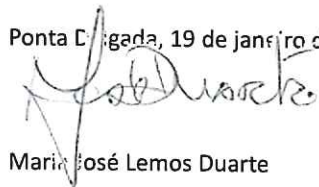 Ponta Delgada, 19 de janeiro d
José Duarte
Maria José Lemos Duarte